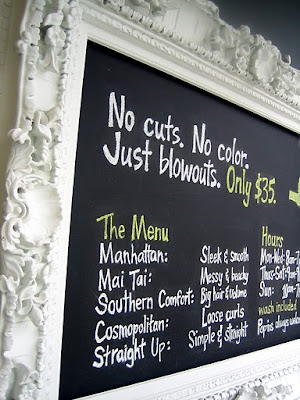 No cuts. No color.
Just blowouts. Only $35.
The Menu
Manhattan: Sleek & smooth
Mai Tai: Messy & beachy
Southern Comfort: Big hair & volume
Cosmopolitan: Loose curls
Straight Up: Simple & straight
Hours
Mon-Wed: 8am-7
Thurs-Sat:
Sun: 10am-7
wash included
always